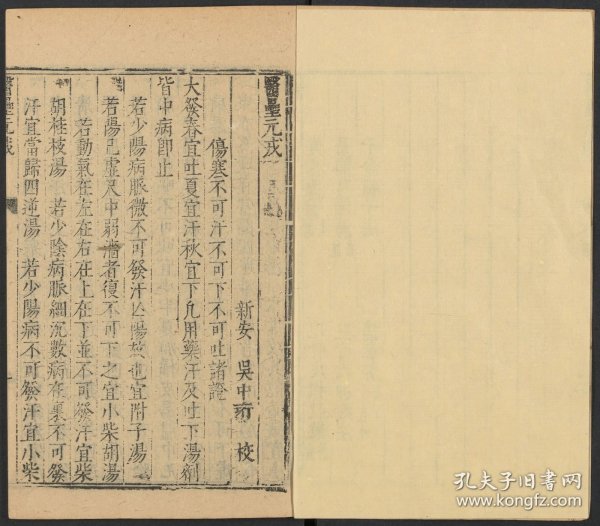 醫壘元戎
新安 吳中珩 校
傷寒不可汗不可下不可吐諸證
大發春宜吐夏宜汗秋宜下凡用藥汗及吐下湯劑
皆中病即止
若少陽病脈微不可發汗亡陽故也宜附子湯
若陽已虛尺中弱濇者復不可下之宜小柴胡湯
若動氣在左在右在上在下並不可發汗宜柴
胡桂枝湯 若少陰病脈細沉數病在裏不可發
汗宜當歸四逆湯 若少陽病不可發汗宜小柴
醫壘元戎
孔夫子旧书网
www.kongfz.com